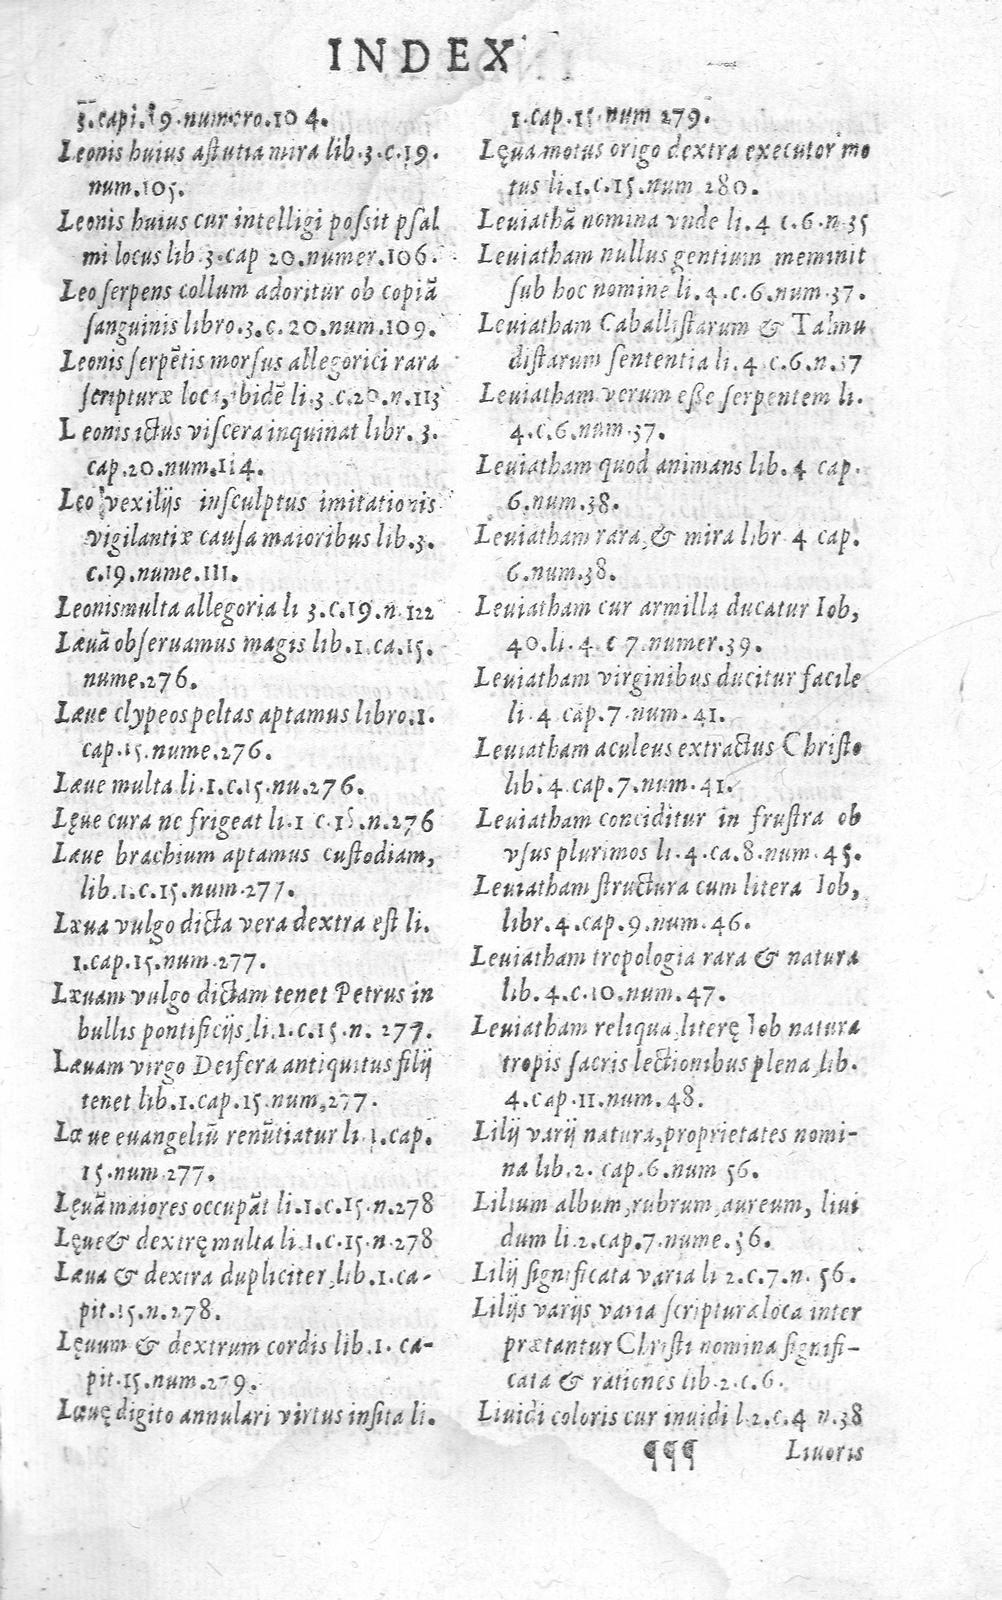 INDEX
3.capi.19.numero.104.
Leonis huius astutia mira lib.3.c.19.
num.105.
Leonis huius cur intelligi possit psal
mi locus lib.3.cap 20.numer.106.
Leo serpens collum adoritur ob copiã
sanguinis libro.3.c.20.num.109.
Leonis serpẽtis morsus allegorici rara
scripturæ loca, ibidẽ li.3.c.20.n.113
Leonis ictus viscera inquinat libr.3.
cap.20.num.114.
Leo vexilijs insculptus imitationis
vigilantiæ causa maioribus lib.3.
c.19.nume.111.
Leonis multa allegoria li 3.c.19.n.122
Læuã obseruamus magis lib.1.ca.15.
nume.276.
Læue clypeos peltas aptamus libro.1.
cap.15.nume.276.
Læue multa li.1.c.15.nu.276.
Lęue cura ne frigeat li.1 c.15.n.276
Læue brachium aptamus custodiam,
lib.1.c.15.num.277.
Læua vulgo dicta vera dextra est li.
1.cap.15.num.277.
Læuam vulgo dictam tenet Petrus in
bullis pontificijs, li.1.c.15.n.277.
Læuam virgo Deifera antiquitus filij
tenet lib.1.cap.15.num,277.
Læue euangeliũ renũtiatur li.1.cap.
15.num.277.
Lęuã maiores occupãt li.1.c.15.n.278
Lęue & dextrę multa li.1.c.15.n.278
Læua & dextra dupliciter, lib.1.ca-
pit.15.n.278.
Lęuum & dextrum cordis lib.1. ca-
pit.15.num.279.
Læuę digito annulari virtus insita li.
1.cap.15.num 279.
Lęua motus origo dextra executor mo
tus li.1.c.15.num 280.
Leuiathã nomina vnde li.4 c.6.n.35
Leuiatham nullus gentium meminit
sub hoc nomine li.4.c.6.num.37.
Leuiatham Caballistarum & Talmu
distarum sententia li.4 c.6.n.37
Leuiatham verum esse serpentem li.
4.c.6.num.37.
Leuiatham quod animans lib.4 cap.
6.num.38.
Leuiatham rara, & mira libr 4 cap.
6.num.38.
Leuiatham cur armilla ducatur Iob,
40.li.4 c 7.numer.39.
Leuiatham virginibus ducitur facile
li.4 cap.7.num.41.
Leuiatham aculeus extractus Christo
lib.4.cap.7.num.41.
Leuiatham conciditur in frustra ob
vsus plurimos li.4.ca.8.num.45.
Leuiatham structura cum litera Iob,
libr.4.cap.9.num.46.
Leuiatham tropologia rara & natura
lib.4.c.10.num.47.
Leuiatham reliqua, literę Iob natura
tropis sacris lectionibus plena, lib.
4.cap.11.num.48.
Lilij varij natura, proprietates nomi-
na lib.2. cap.6.num 56.
Lilium album, rubrum, aureum, liui
dum li.2.cap.7.nume.56.
Lilij significata varia li 2.c.7.n.56.
Lilijs varijs varia scriptura loca inter
prætantur Christi nomina signifi-
cata & rationes lib.2.c.6.
Liuidi coloris cur inuidi l.2.c.4 n.38
¶¶¶ Liuoris